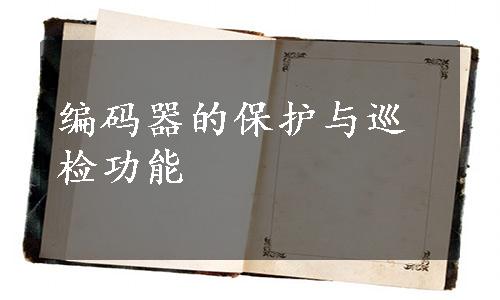 编码器的保护与巡
检功能